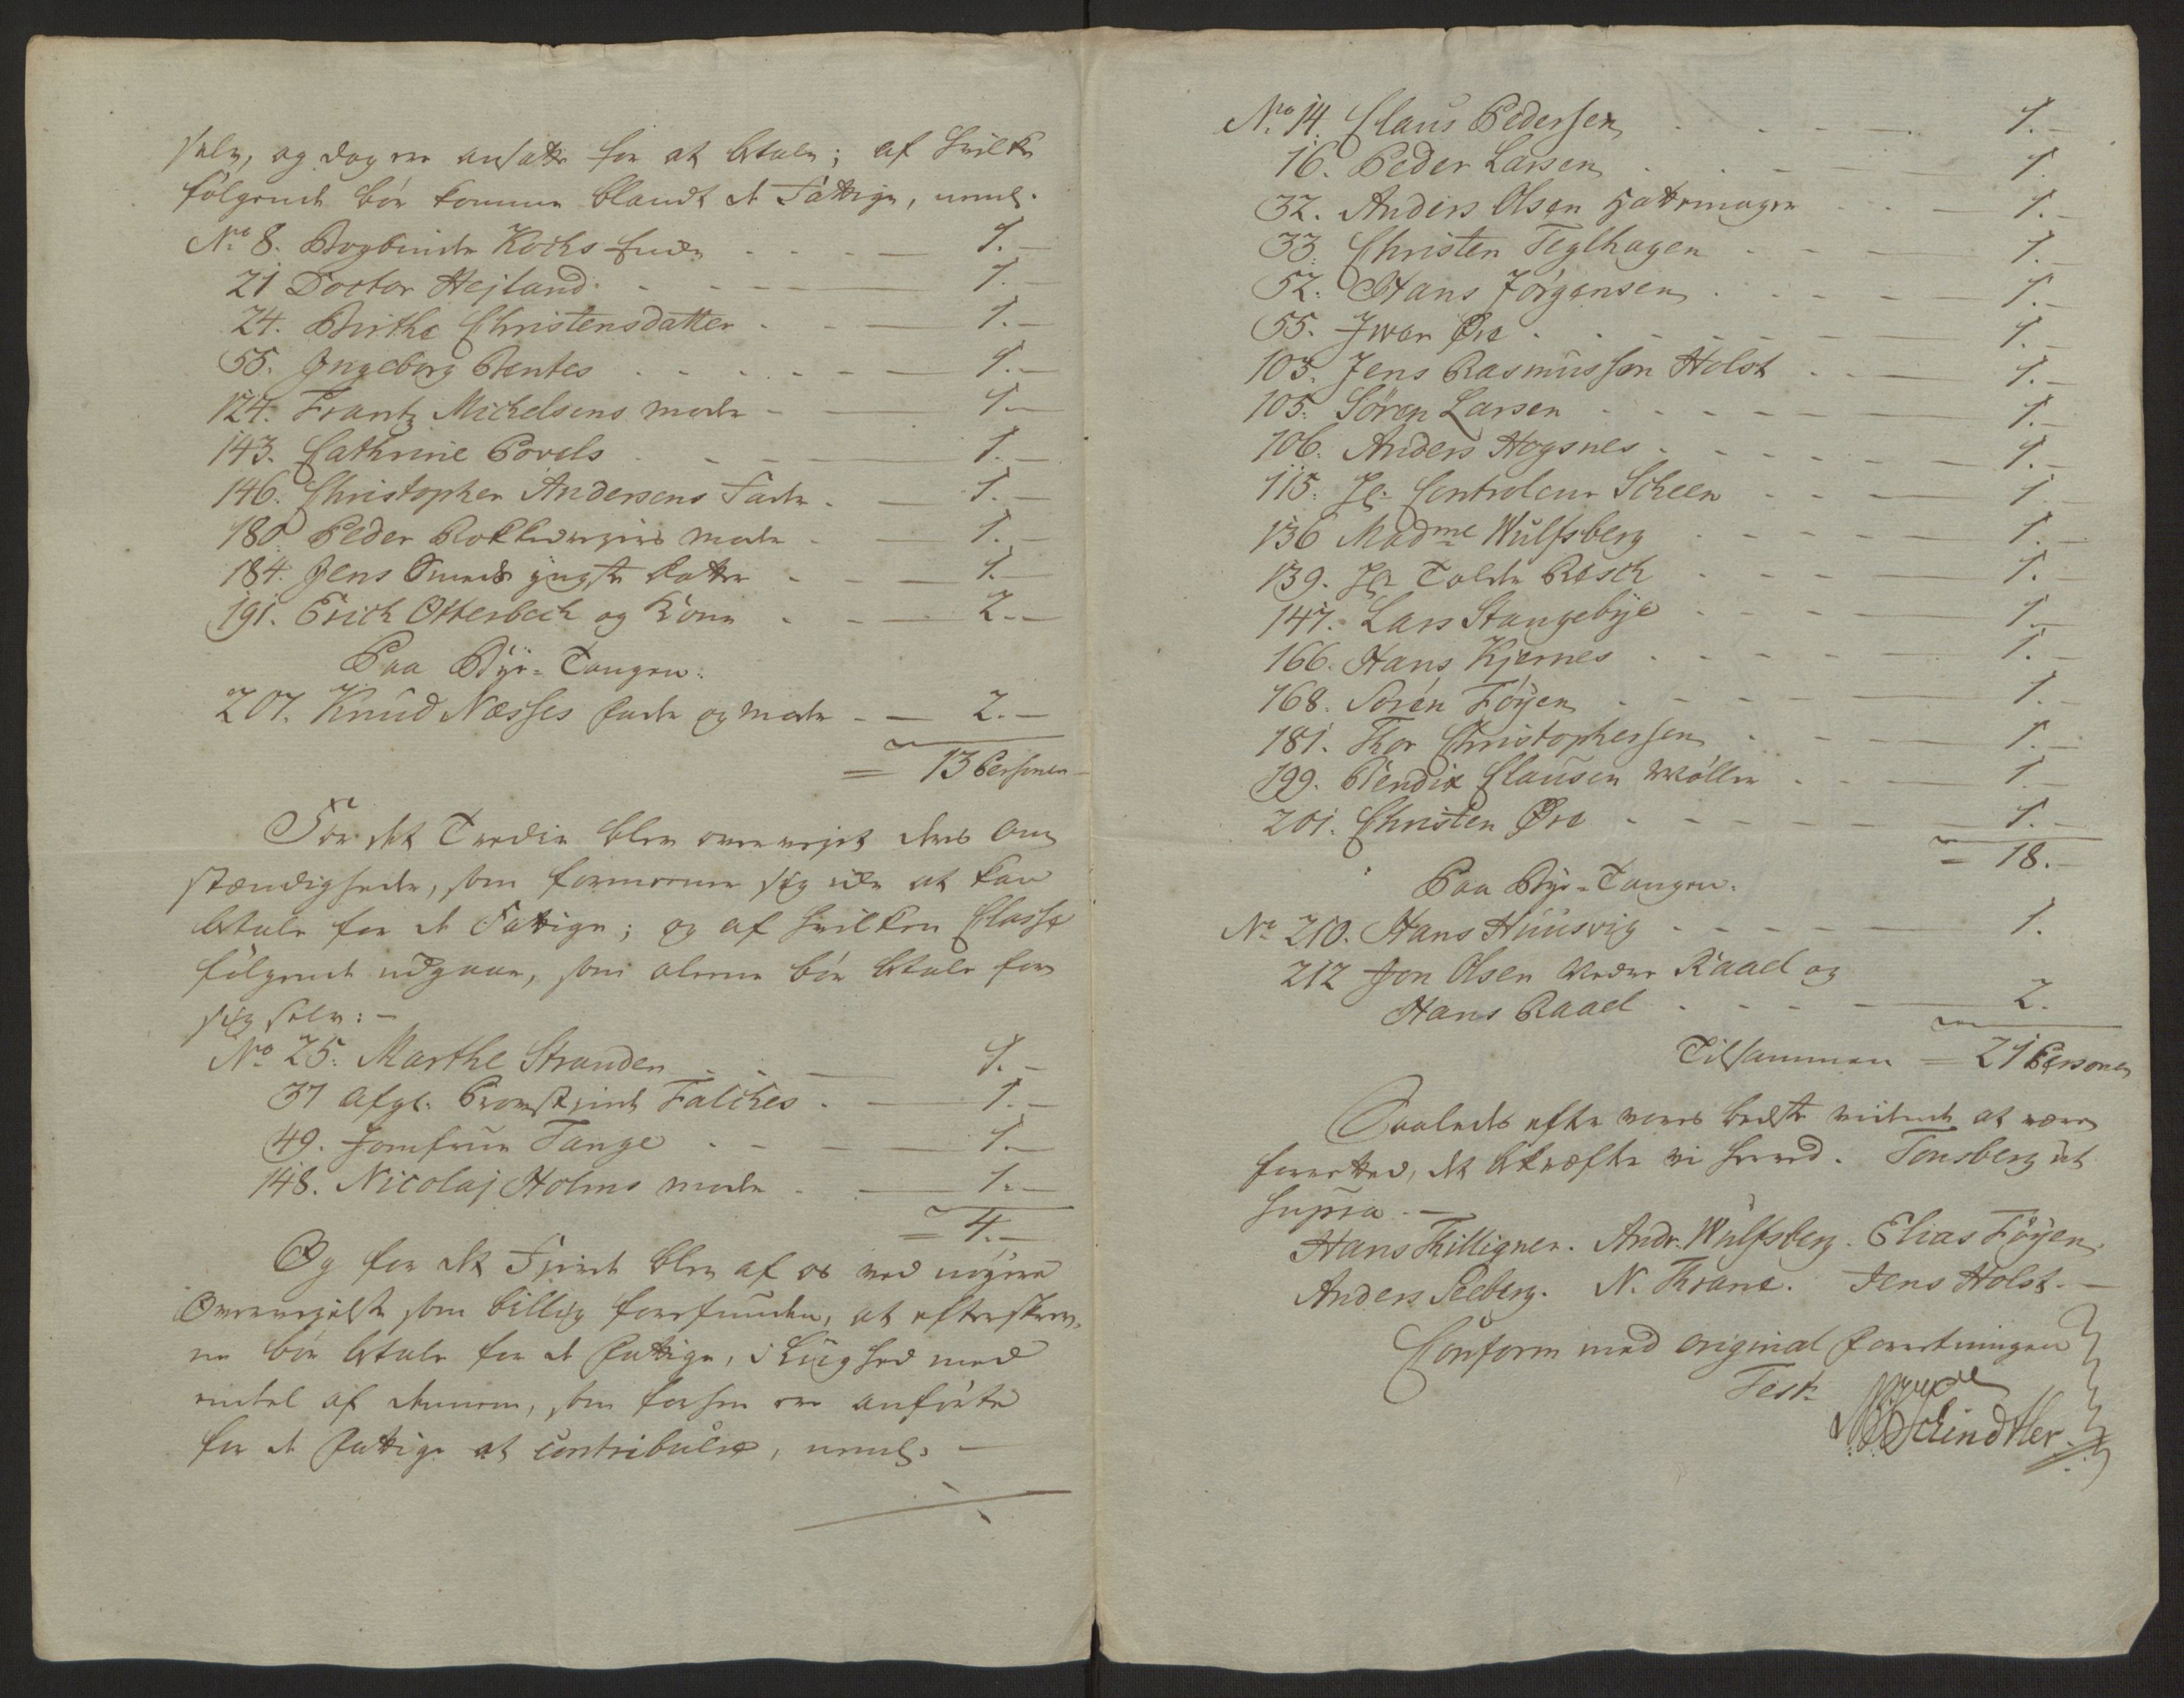 selv, og dog ere ansatte for at betale; af hvilke
følgende bør komme blandt de Fattige, neml.
No 8. Bogbinder Kochs Enke - - - 1.-
21 Doctor Hejland - - - 1.-
24. Birthe Christensdatter - - - 1.-
55. Ingeborg Bentes - - - 1.-
124. Frantz Michelsens moder - - 1.-
143. Cathrine Povels - - - 1.-
146. Christopher Andersens Fader - - 1.-
180 Peder moder - - 1.-
184. Jens Smeds yngste datter - - 1.-
191. Erich Otterbech og Kone - - 2.-
Paa Bye-Tangen.
207. Knud Næsses fader og moder - - 2.-
= 13 Personer
For det Tredie blev overvejet deres Om
stændigheder, som formeene sig ikke at kan
betale for de Fattige; og af hvilken Classe
følgende udgaae, som alene bør betale for
sig selv: -
No 25. Marthe Stranden - - - 1.-
31 afgl. Provstinde Falches - - 1.-
49. Jomfrue Tange - - - 1.-
148. Nicolaj Holms moder - - 1.-
= 4.-
Og for det Fjerde blev af os ved nøjere
Overvejelse som billig forefunden, at efterskrev-
ne bør betale for de fattige, i Liighed med
endel af dennem, som forhen ere anførte
for de fattige at contribuere, neml. -
No 14. Claus Pedersen - - - 1.-
16. Peder Larsen - - - 1.
32. Anders Olsen Hattemager - - - 1.-
33. Christen Teglhagen - - - 1.-
52. Hans Jörgensen - - - 1.-
55. Iwer Øre - - - 1.-
103. Jens Rasmussen Holst - - 1.-
105. Sören Larsen - - - 1.-
106. Anders Hogsnes - - - 1.-
115. Hr. Controleur Scheen - - - 1.
136 Madme Wulfsberg - - - 1.-
139. Hr. Tolder Rosch - - - 1.
147. Lars Stangebye - - - 1.-
166. Hans Kjernes - - - 1.-
168. Soren Föyen - - - 1.-
181. Thor Christophersen - - - 1.-
199. Bendix Clausen Møller - - - 1.-
201. Christen Øre - - - 1.-
= 18.-
Paa Bye-Tangen.
No 210. Hans Huusvig - - - 1.
212 Jon Olsen Nedre Raael og
Hans Raael - - - 2.
Tilsammen = 21 Personer
Saaledes efter vores bedste vidende at være
forrettet, det bekræfter vi herved. Tonsberg ut
supra. -
Hans Thilligner. Andr. Wulfsberg. Elias Föyen.
Anders Seeberg. N. Thrane. Jens Holst. -
Conform med original forretningen
Test.
Schindtler